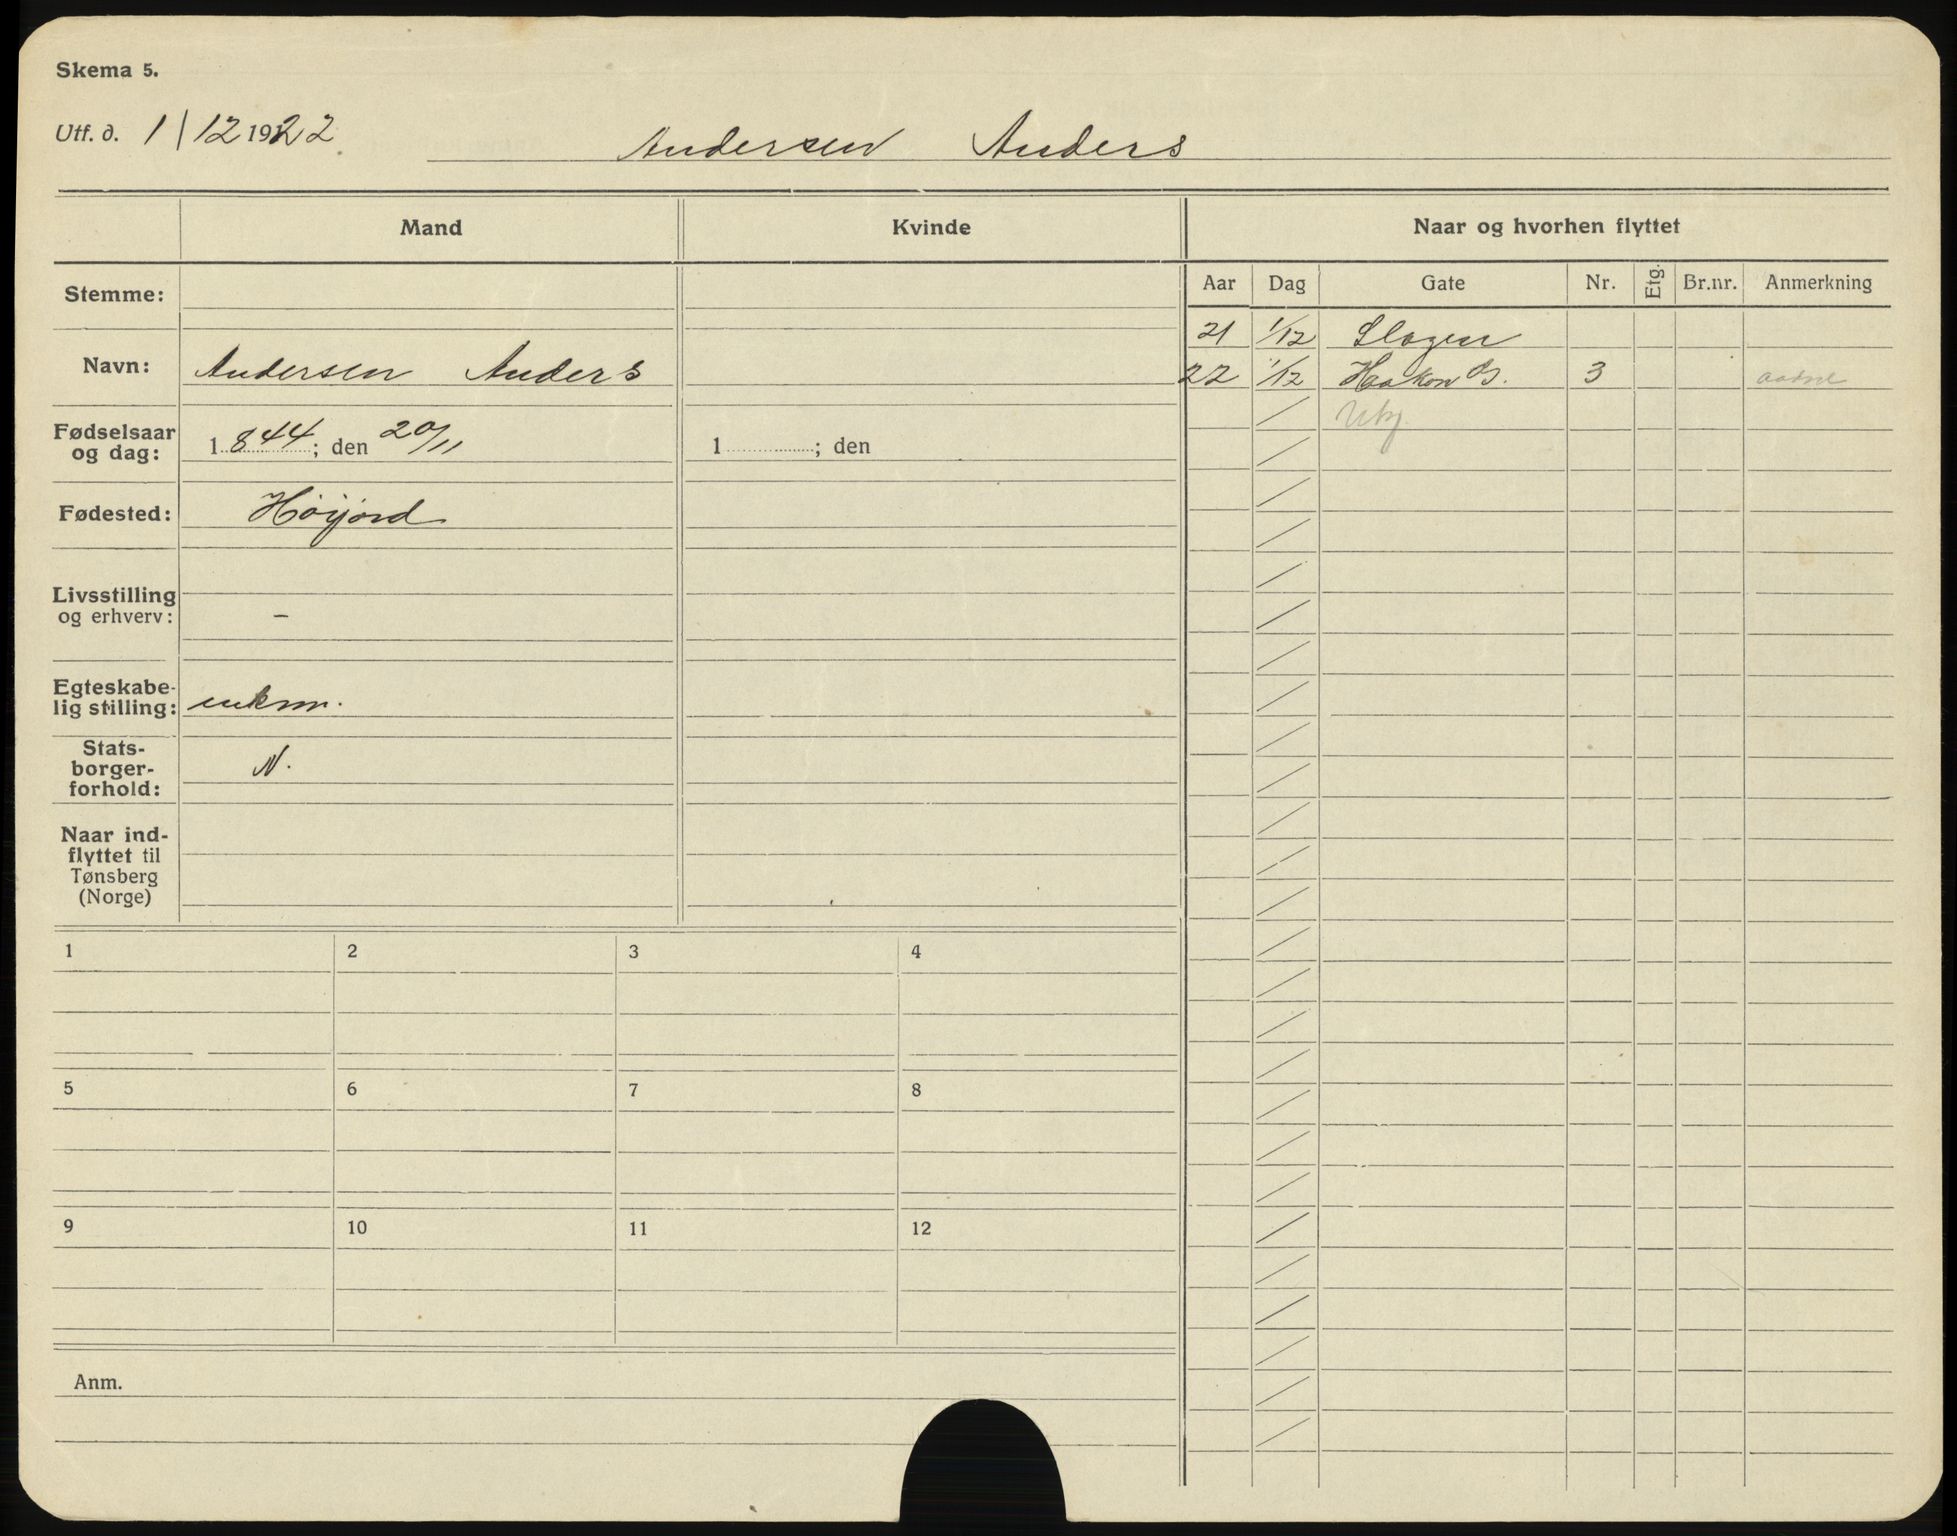 Skema 5.
Utf. d. 1/12 1922
Andersen Anders
Mand Kvinde Naar og hvorhen flyttet
Aar Dag Gate Nr. Etg. Br.nr. Anmerkning
Stemme:
21 1/12 Slagen
Navn: Andersen Anders
22 1/12 Haakon 3
Fødselsaar og dag: 1844; den 20/11 1 ; den
Fødested: Höijord
Livsstilling og erhverv: -
Egteskabe-
lig stilling: enkm.
Stats-
borger-
forhold: N.
Naar ind-
flyttet til
Tønsberg
(Norge)
1 2 3 4
5 6 7 8
9 10 11 12
Anm.